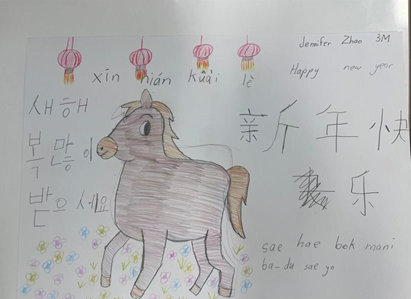 Jennifer Zhao 3M
Happy new year
xīn nián kuài lè
새해
복 많이
받으세요
新年快
乐
sae hae bok mani
ba-du sae yo